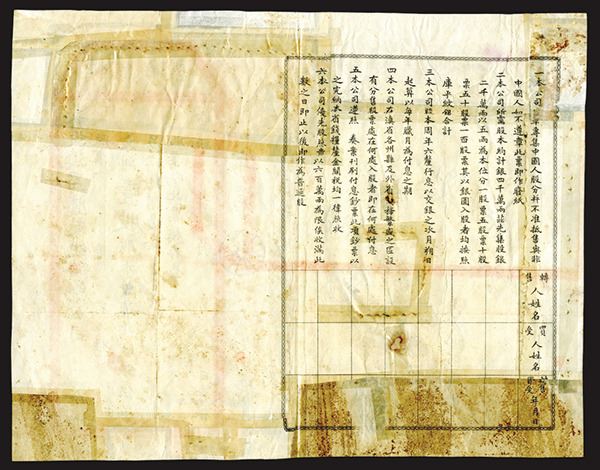 一本公司 專集中國人股分料不准抵售與非
中國人如不遵章此票即作廢紙
二本公司所需股本約計銀四千萬兩茲先集股銀
二千萬兩以五兩為本位分一股票五股票十股
票五十股票一百股票其以銀圓入股者均按照
庫平紋銀合計
三本公司股本周年六釐行息以交銀之次月朔日
起算以每年臘月為付息之期
四本公司在滇省各州縣及外省 繁盛之區設
有分售股票處在何處入股者即在何處付息
五本公司遵照 奏案刊刷付息鈔票此項鈔票以
之完納本省錢糧釐金關稅均一律照收
六本公司優先股股票以六百萬兩為限俟收滿此
數之日即止以後即作為普通股
轉售人姓名
買受人姓名
年月日